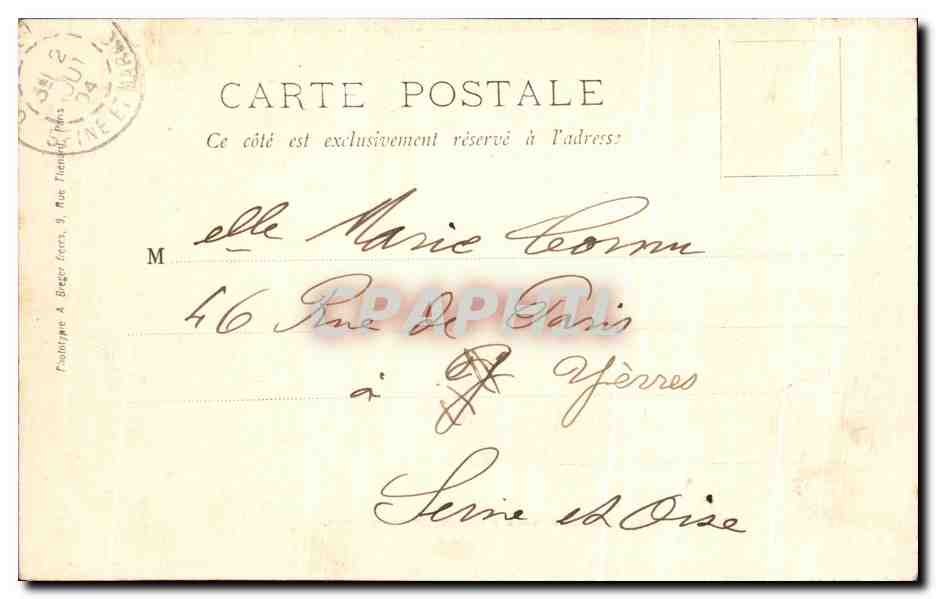 3E
2
AOUT
04
SEINE ET MAR
CARTE POSTALE
Ce côté est exclusivement réservé à l'adresse
Melle Marie Cornu
46 Rue de Paris
à Yèrres
Seine et Oise
Phototypie A Breger frères, 9, Rue Thénard, Paris
CPAPHIL